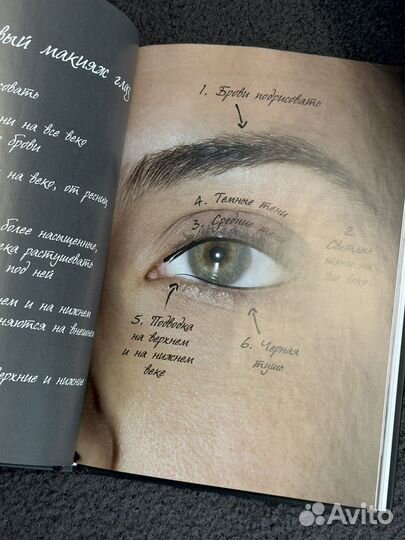 макияж глаз
совать
ни на все веко
е брови
на веко, от ресниц
более насыщенные,
ека растушевать
под ней
нем и на нижнем
няются на внешнем
ерхние и нижние
1. Брови подрисовать
4. Темные тени
3. Средние тени
2.
Светлые
тени на
все веко
5. Подводка
на верхнем
и на нижнем
веке
6. Черная
тушь
Avito